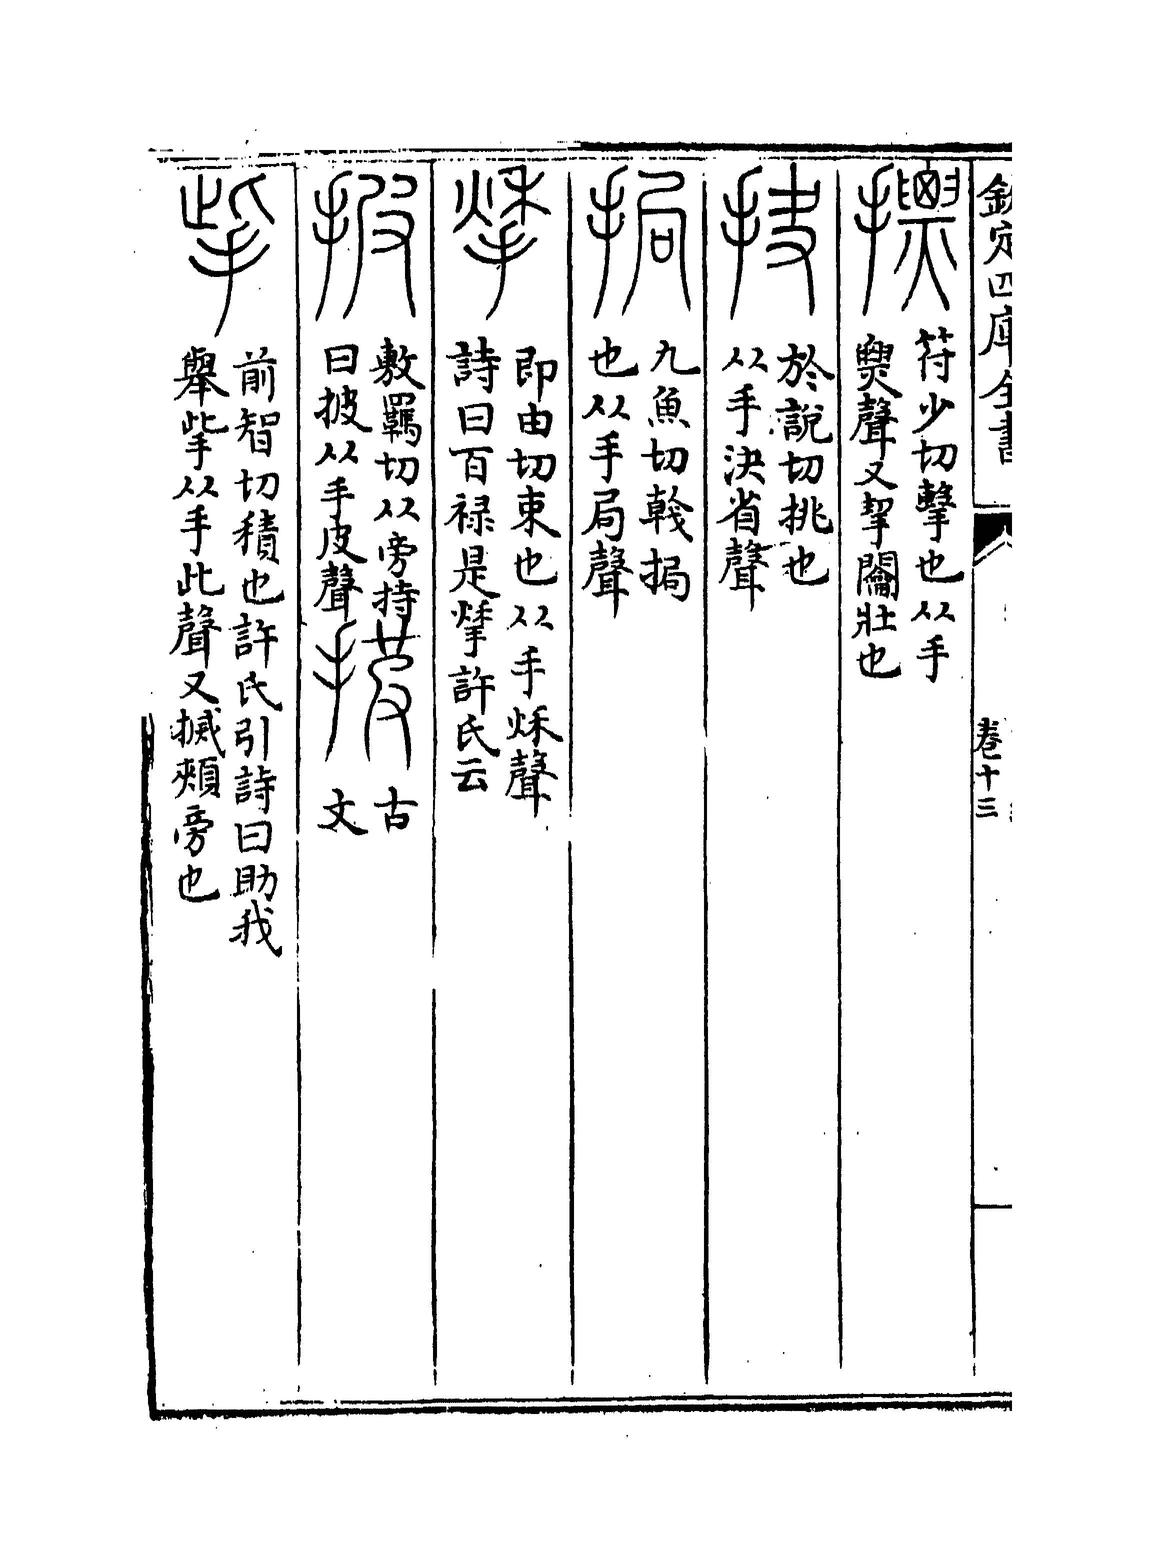 欽定四庫全書
卷十三
摽
符少切擊也从手
㶾聲又挈𨷲壯也
抉
於說切挑也
从手決省聲
挶
九魚切戟挶
也从手局聲
揫
即由切束也从手秌聲
詩曰百禄是揫許氏云
披
敷羈切从旁持
曰披从手皮聲
古
文
㧘
前智切積也許氏引詩曰助我
舉㧘从手此聲又搣頰旁也